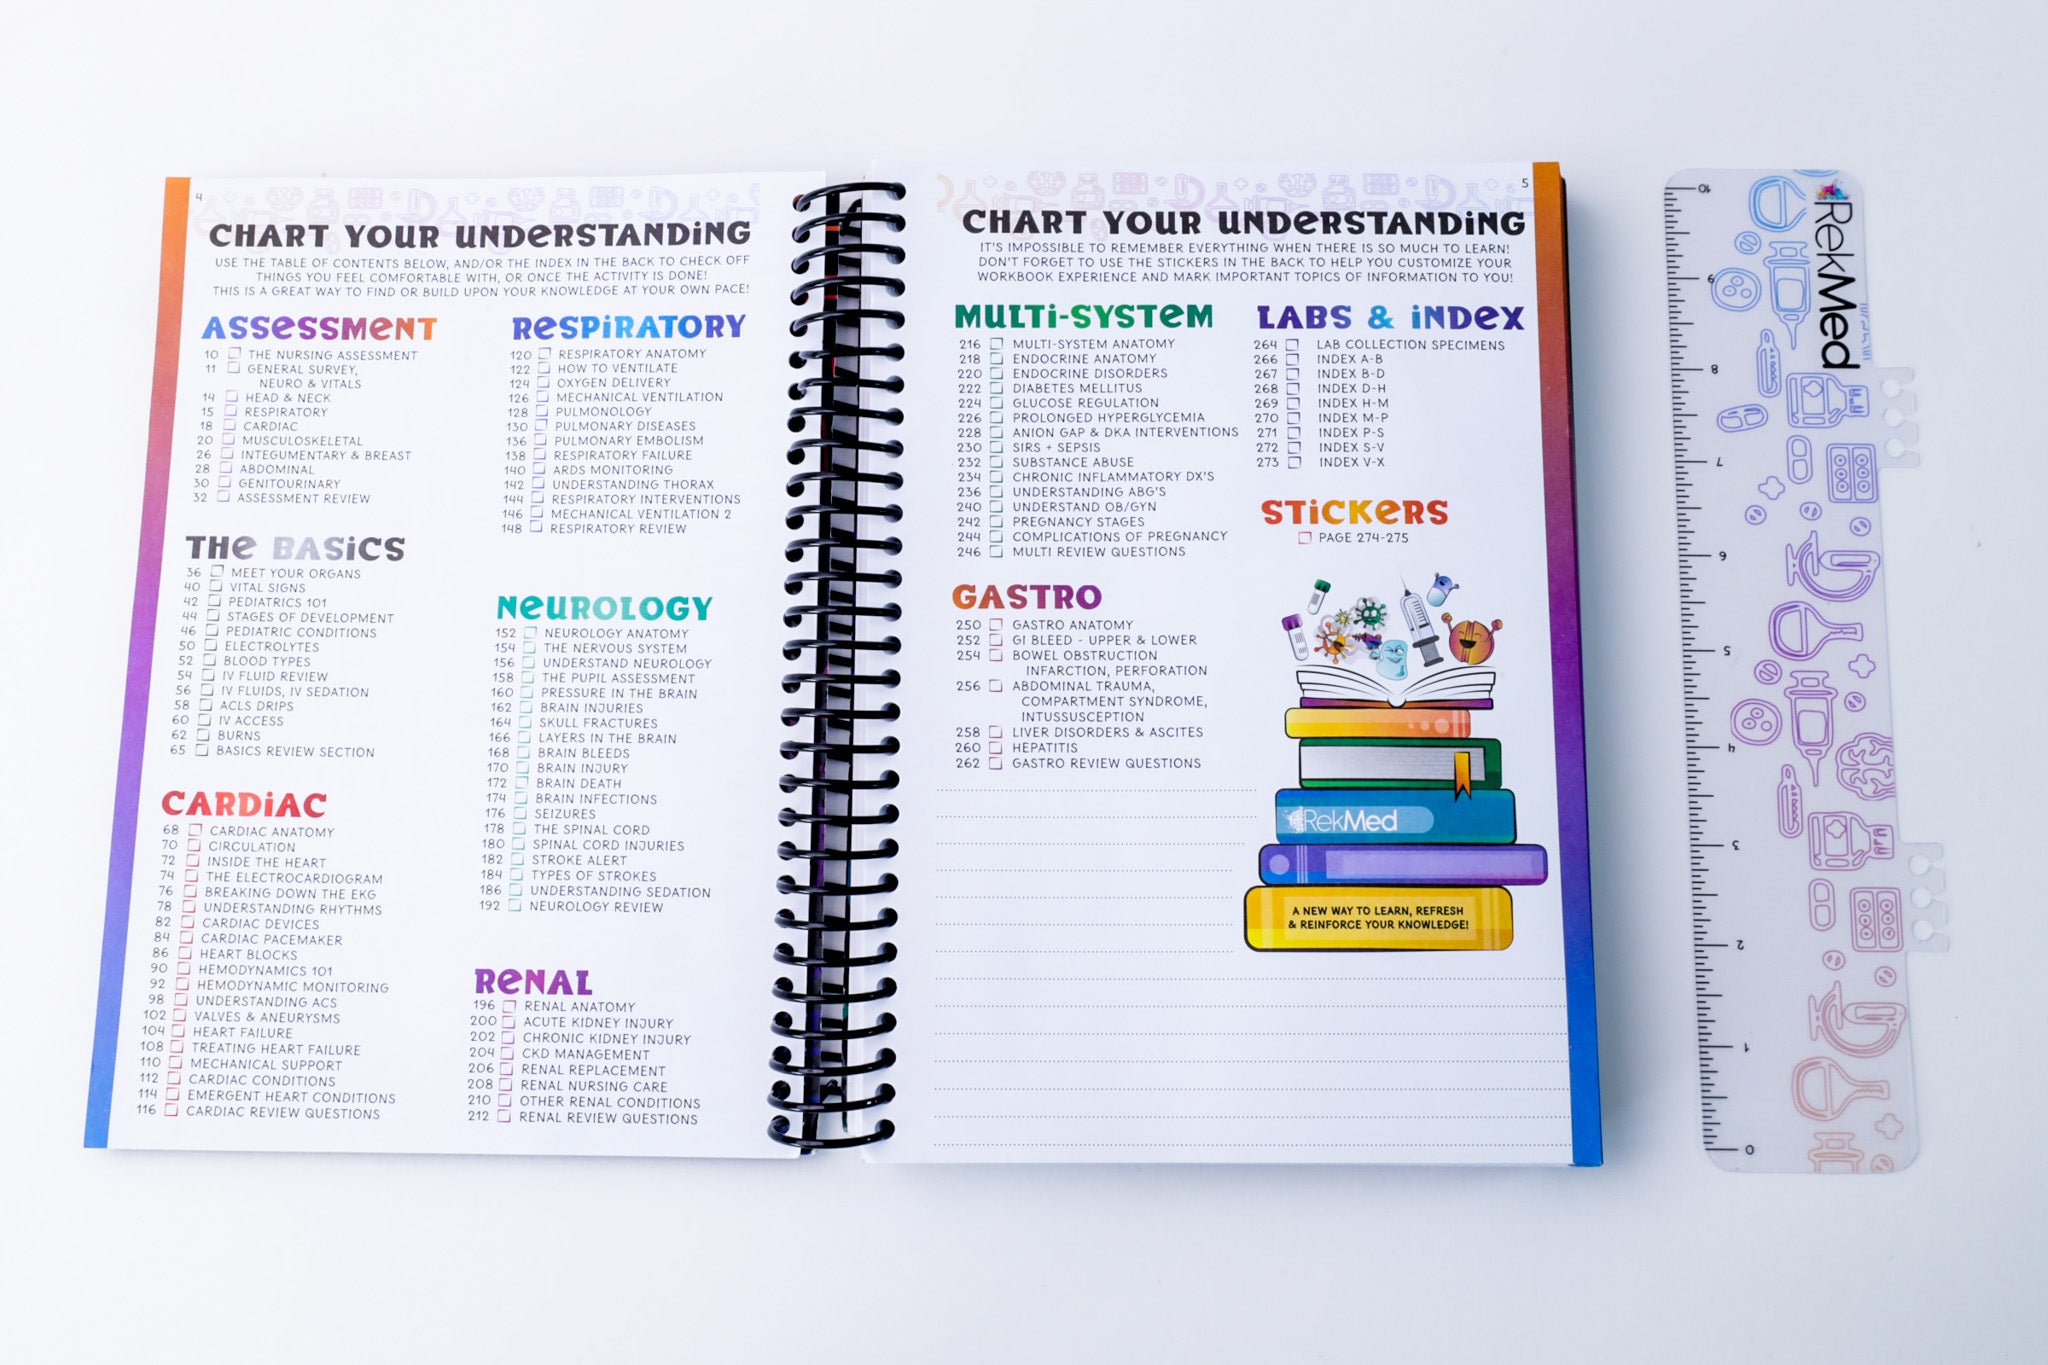 4
CHART YOUR UNDERSTANDING
USE THE TABLE OF CONTENTS BELOW, AND/OR THE INDEX IN THE BACK TO CHECK OFF
THINGS YOU FEEL COMFORTABLE WITH, OR ONCE THE ACTIVITY IS DONE!
THIS IS A GREAT WAY TO FIND OR BUILD UPON YOUR KNOWLEDGE AT YOUR OWN PACE!
ASSESSMENT
10 THE NURSING ASSESSMENT
11 GENERAL SURVEY,
NEURO & VITALS
14 HEAD & NECK
15 RESPIRATORY
18 CARDIAC
20 MUSCULOSKELETAL
26 INTEGUMENTARY & BREAST
28 ABDOMINAL
30 GENITOURINARY
32 ASSESSMENT REVIEW
THE BASICS
36 MEET YOUR ORGANS
40 VITAL SIGNS
42 PEDIATRICS 101
44 STAGES OF DEVELOPMENT
46 PEDIATRIC CONDITIONS
50 ELECTROLYTES
52 BLOOD TYPES
54 IV FLUID REVIEW
56 IV FLUIDS, IV SEDATION
58 ACLS DRIPS
60 IV ACCESS
62 BURNS
65 BASICS REVIEW SECTION
CARDIAC
68 CARDIAC ANATOMY
70 CIRCULATION
72 INSIDE THE HEART
74 THE ELECTROCARDIOGRAM
76 BREAKING DOWN THE EKG
78 UNDERSTANDING RHYTHMS
82 CARDIAC DEVICES
84 CARDIAC PACEMAKER
86 HEART BLOCKS
90 HEMODYNAMICS 101
92 HEMODYNAMIC MONITORING
98 UNDERSTANDING ACS
102 VALVES & ANEURYSMS
104 HEART FAILURE
108 TREATING HEART FAILURE
110 MECHANICAL SUPPORT
112 CARDIAC CONDITIONS
114 EMERGENT HEART CONDITIONS
116 CARDIAC REVIEW QUESTIONS
RESPIRATORY
120 RESPIRATORY ANATOMY
122 HOW TO VENTILATE
124 OXYGEN DELIVERY
126 MECHANICAL VENTILATION
128 PULMONOLOGY
130 PULMONARY DISEASES
136 PULMONARY EMBOLISM
138 RESPIRATORY FAILURE
140 ARDS MONITORING
142 UNDERSTANDING THORAX
144 RESPIRATORY INTERVENTIONS
146 MECHANICAL VENTILATION 2
148 RESPIRATORY REVIEW
NEUROLOGY
152 NEUROLOGY ANATOMY
154 THE NERVOUS SYSTEM
156 UNDERSTAND NEUROLOGY
158 THE PUPIL ASSESSMENT
160 PRESSURE IN THE BRAIN
162 BRAIN INJURIES
164 SKULL FRACTURES
166 LAYERS IN THE BRAIN
168 BRAIN BLEEDS
170 BRAIN INJURY
172 BRAIN DEATH
174 BRAIN INFECTIONS
176 SEIZURES
178 THE SPINAL CORD
180 SPINAL CORD INJURIES
182 STROKE ALERT
184 TYPES OF STROKES
186 UNDERSTANDING SEDATION
192 NEUROLOGY REVIEW
RENAL
196 RENAL ANATOMY
200 ACUTE KIDNEY INJURY
202 CHRONIC KIDNEY INJURY
204 CKD MANAGEMENT
206 RENAL REPLACEMENT
208 RENAL NURSING CARE
210 OTHER RENAL CONDITIONS
212 RENAL REVIEW QUESTIONS
5
CHART YOUR UNDERSTANDING
IT'S IMPOSSIBLE TO REMEMBER EVERYTHING WHEN THERE IS SO MUCH TO LEARN!
DON'T FORGET TO USE THE STICKERS IN THE BACK TO HELP YOU CUSTOMIZE YOUR
WORKBOOK EXPERIENCE AND MARK IMPORTANT TOPICS OF INFORMATION TO YOU!
MULTI-SYSTEM
216 MULTI-SYSTEM ANATOMY
218 ENDOCRINE ANATOMY
220 ENDOCRINE DISORDERS
222 DIABETES MELLITUS
224 GLUCOSE REGULATION
226 PROLONGED HYPERGLYCEMIA
228 ANION GAP & DKA INTERVENTIONS
230 SIRS + SEPSIS
232 SUBSTANCE ABUSE
234 CHRONIC INFLAMMATORY DX'S
236 UNDERSTANDING ABG'S
240 UNDERSTAND OB/GYN
242 PREGNANCY STAGES
244 COMPLICATIONS OF PREGNANCY
246 MULTI REVIEW QUESTIONS
GASTRO
250 GASTRO ANATOMY
252 GI BLEED - UPPER & LOWER
254 BOWEL OBSTRUCTION
INFARCTION, PERFORATION
256 ABDOMINAL TRAUMA,
COMPARTMENT SYNDROME,
INTUSSUSCEPTION
258 LIVER DISORDERS & ASCITES
260 HEPATITIS
262 GASTRO REVIEW QUESTIONS
LABS & INDEX
264 LAB COLLECTION SPECIMENS
266 INDEX A-B
267 INDEX B-D
268 INDEX D-H
269 INDEX H-M
270 INDEX M-P
271 INDEX P-S
272 INDEX S-V
273 INDEX V-X
STICKERS
PAGE 274-275
RekMed
A NEW WAY TO LEARN, REFRESH
& REINFORCE YOUR KNOWLEDGE!
RekMed
10
9
8
7
6
5
4
3
2
1
0